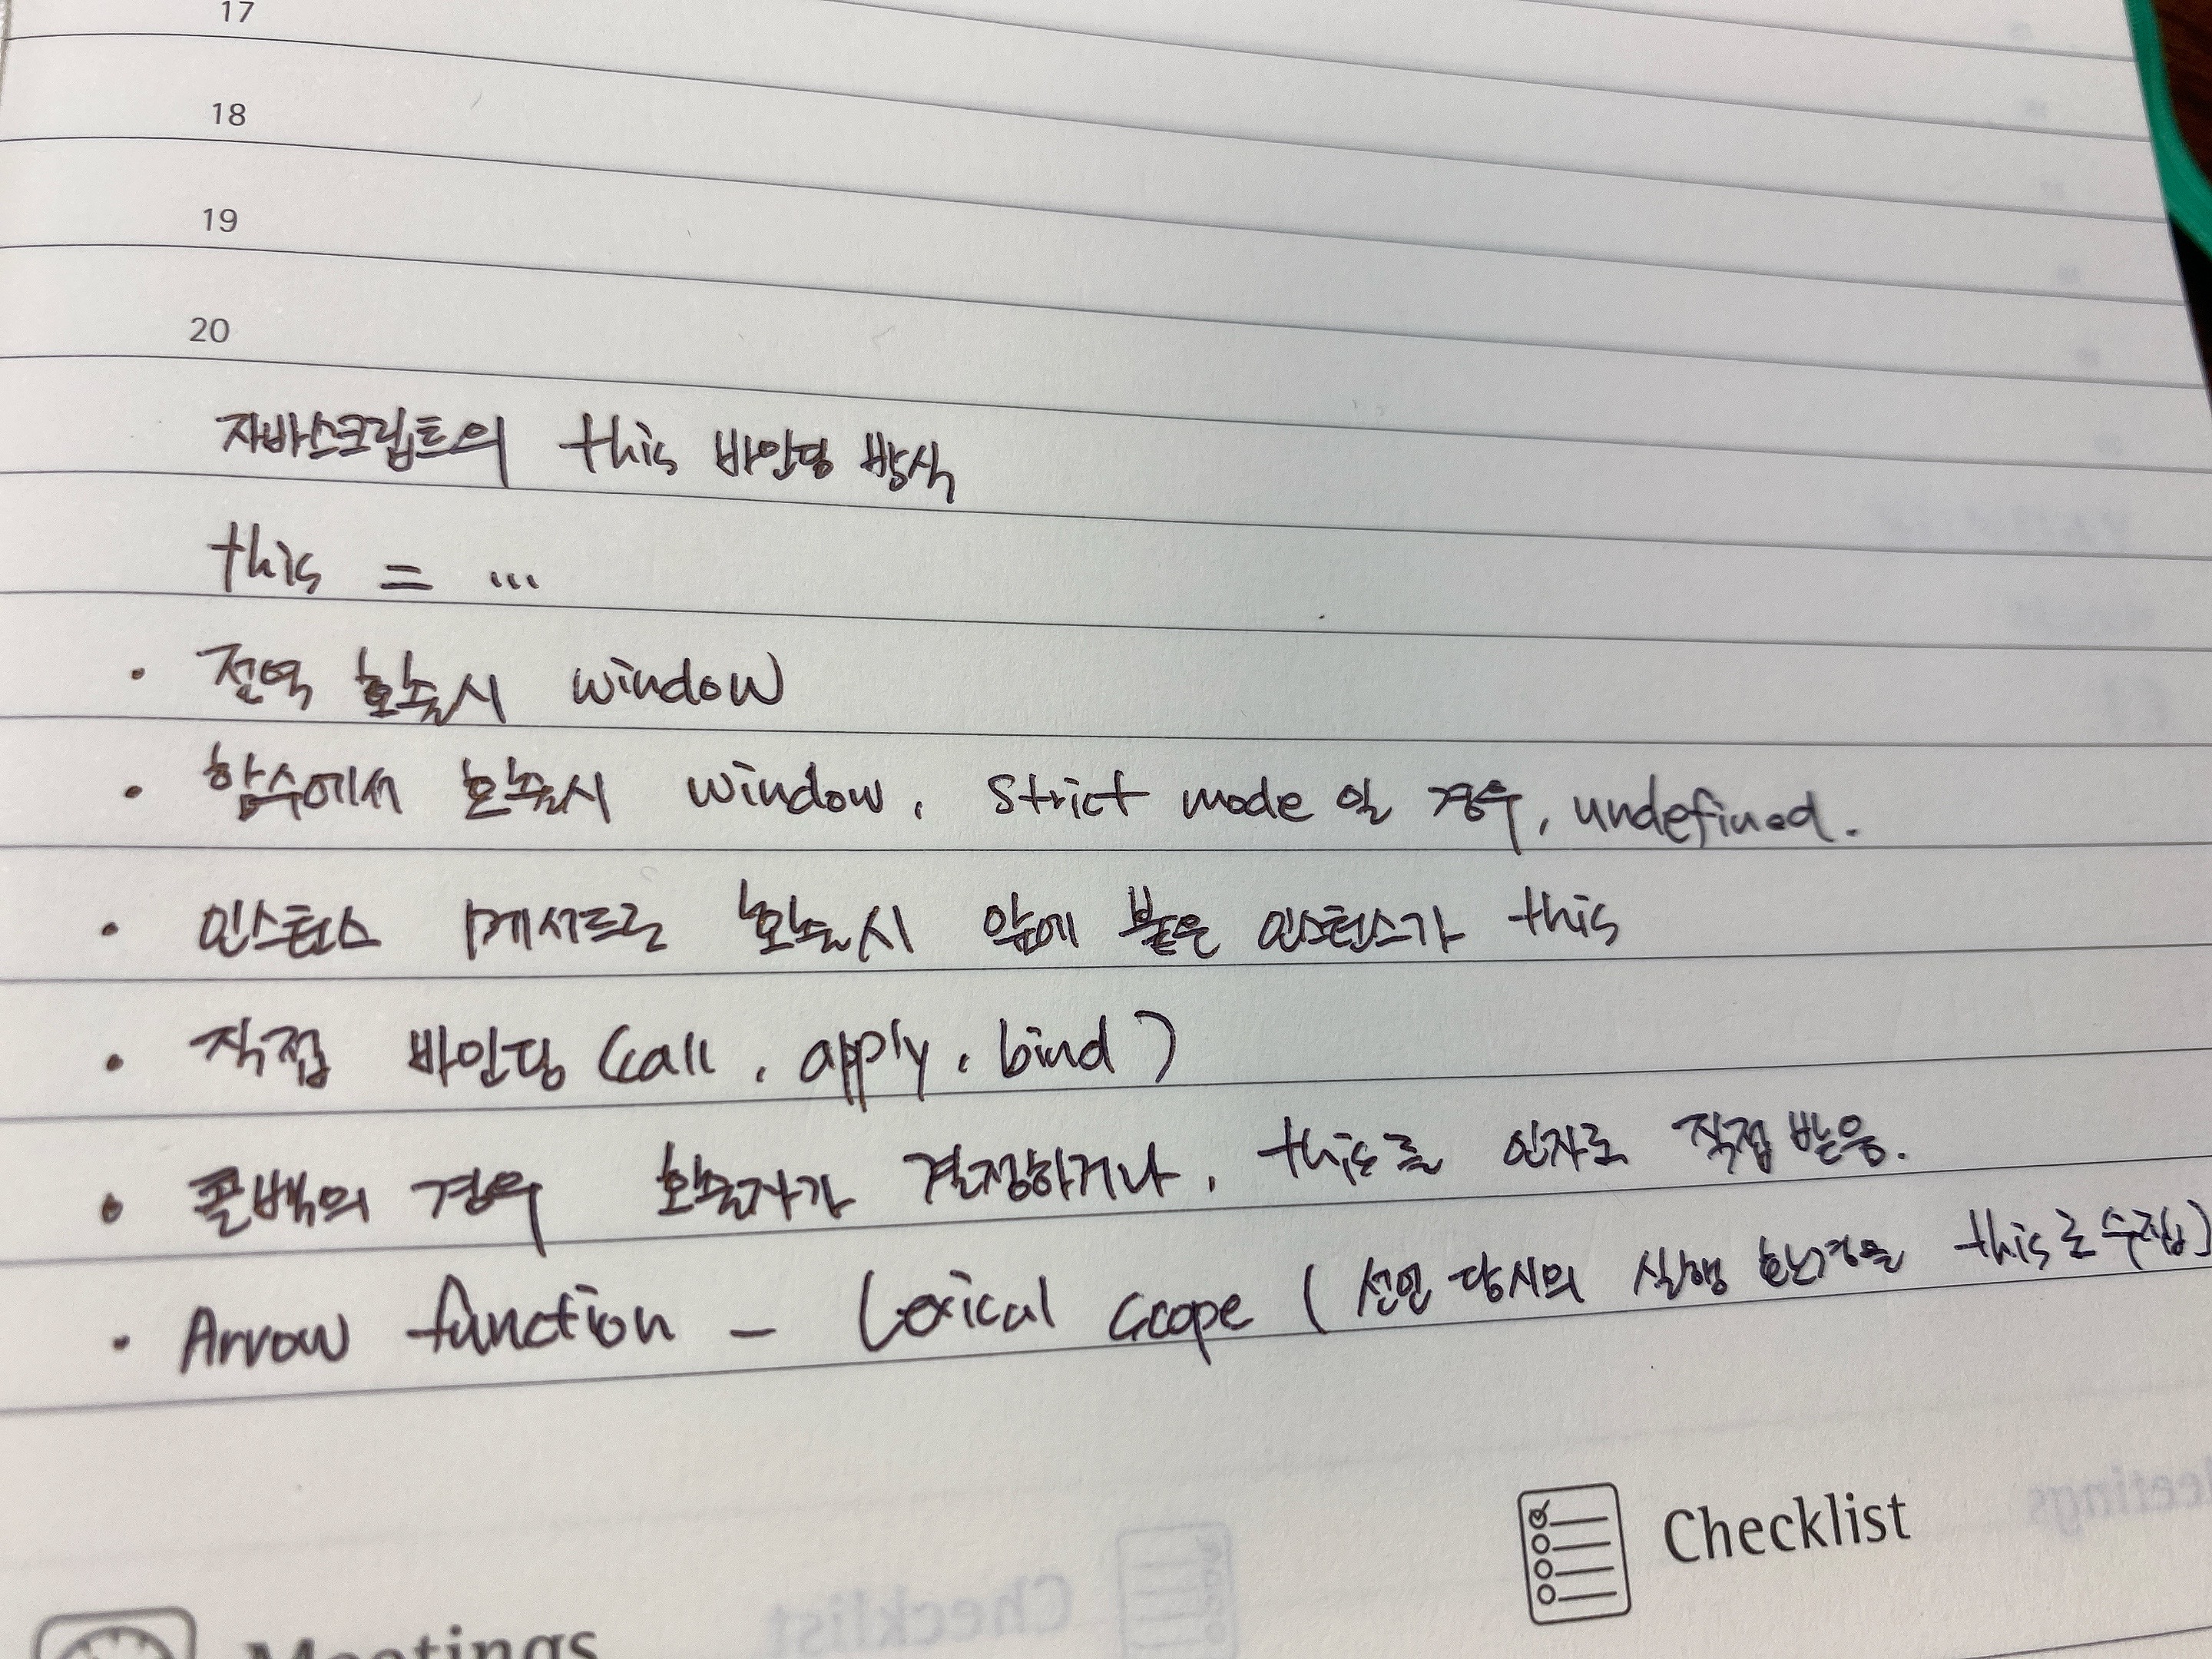 17
18
19
20
자바스크립트의 this 바인딩 방식
this = ...
· 전역 호출시 window
· 함수에서 호출시 window, strict mode 일 경우, undefined.
· 인스턴스 메서드로 호출시 앞에 붙은 인스턴스가 this
· 직접 바인딩 (call, apply, bind)
· 콜백의 경우 호출자가 결정하거나, this를 인자로 직접 받음.
· Arrow function - Lexical scope (선언 당시의 실행 환경을 this로 수집)
Checklist
Meetings